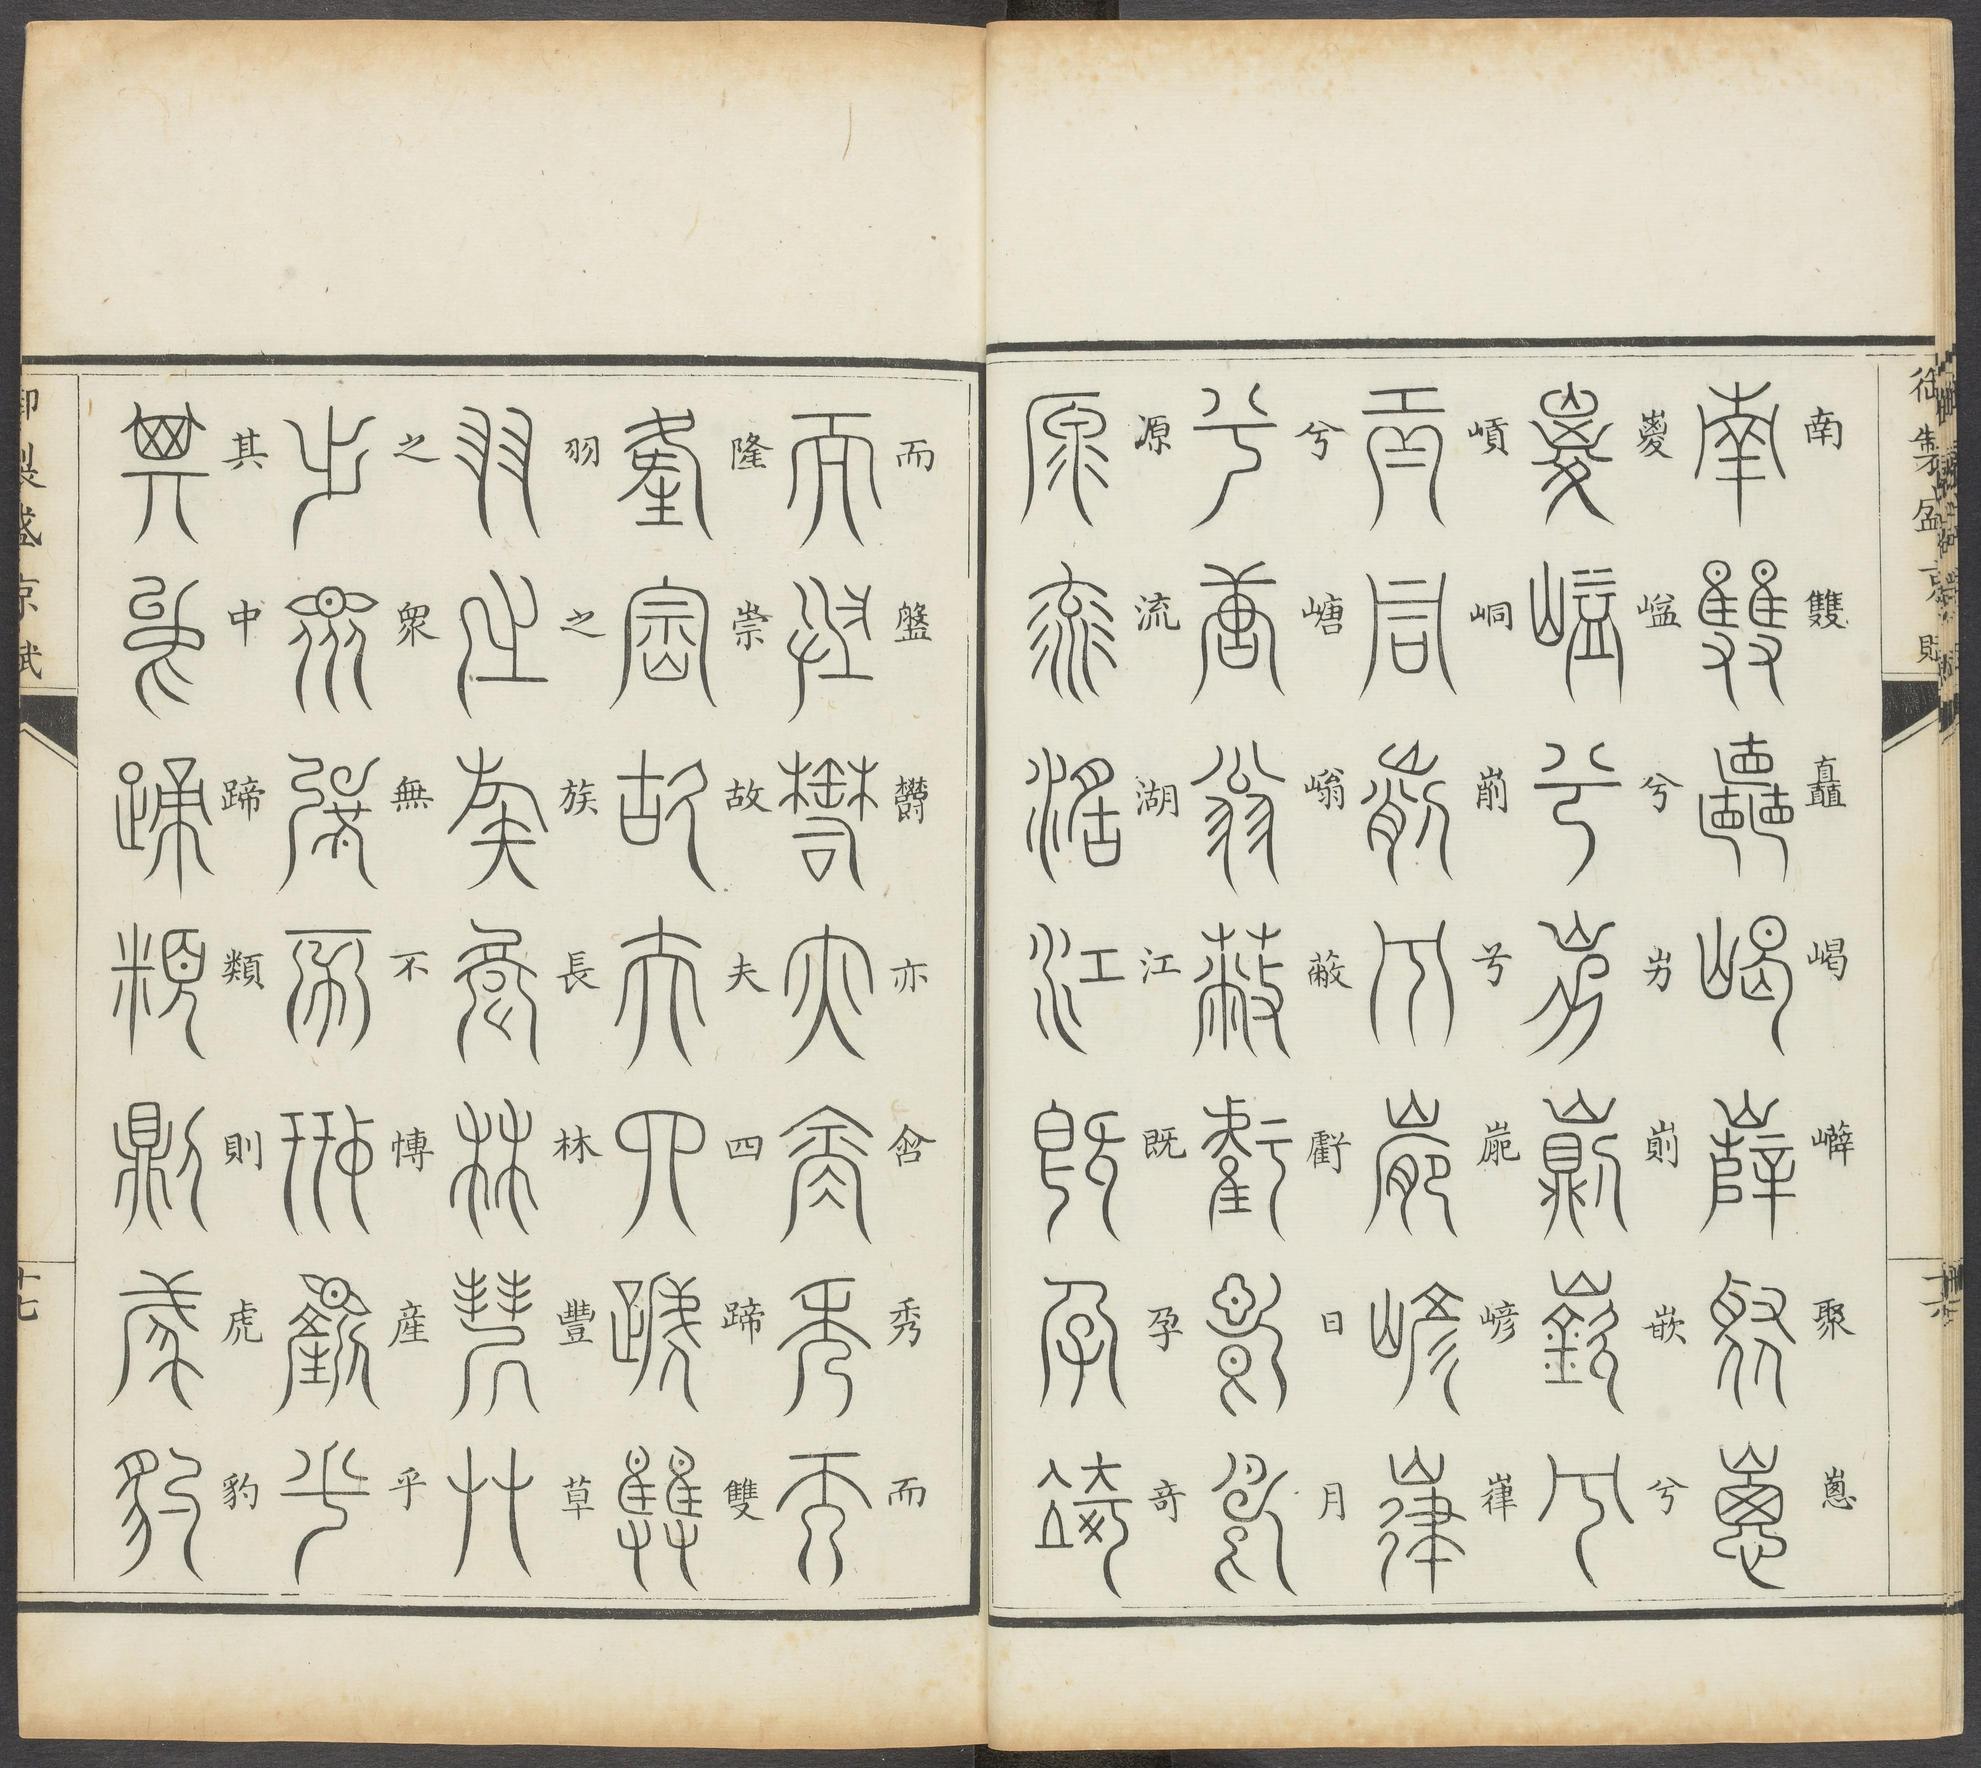 御製盛京賦
南雙矗嵑嶭聚嵏
嵕嵫兮屴崱嵌兮
㟅峒峛兮嵬嵃嵂
兮嵣嵡蔽虧日月
源流湖江既孕奇
十六
而盤欝亦含秀而
隆崇故夫四蹄雙
羽之族長林豐草
之衆無不博産乎
其中蹄類則虎豹
御製盛京賦
十七